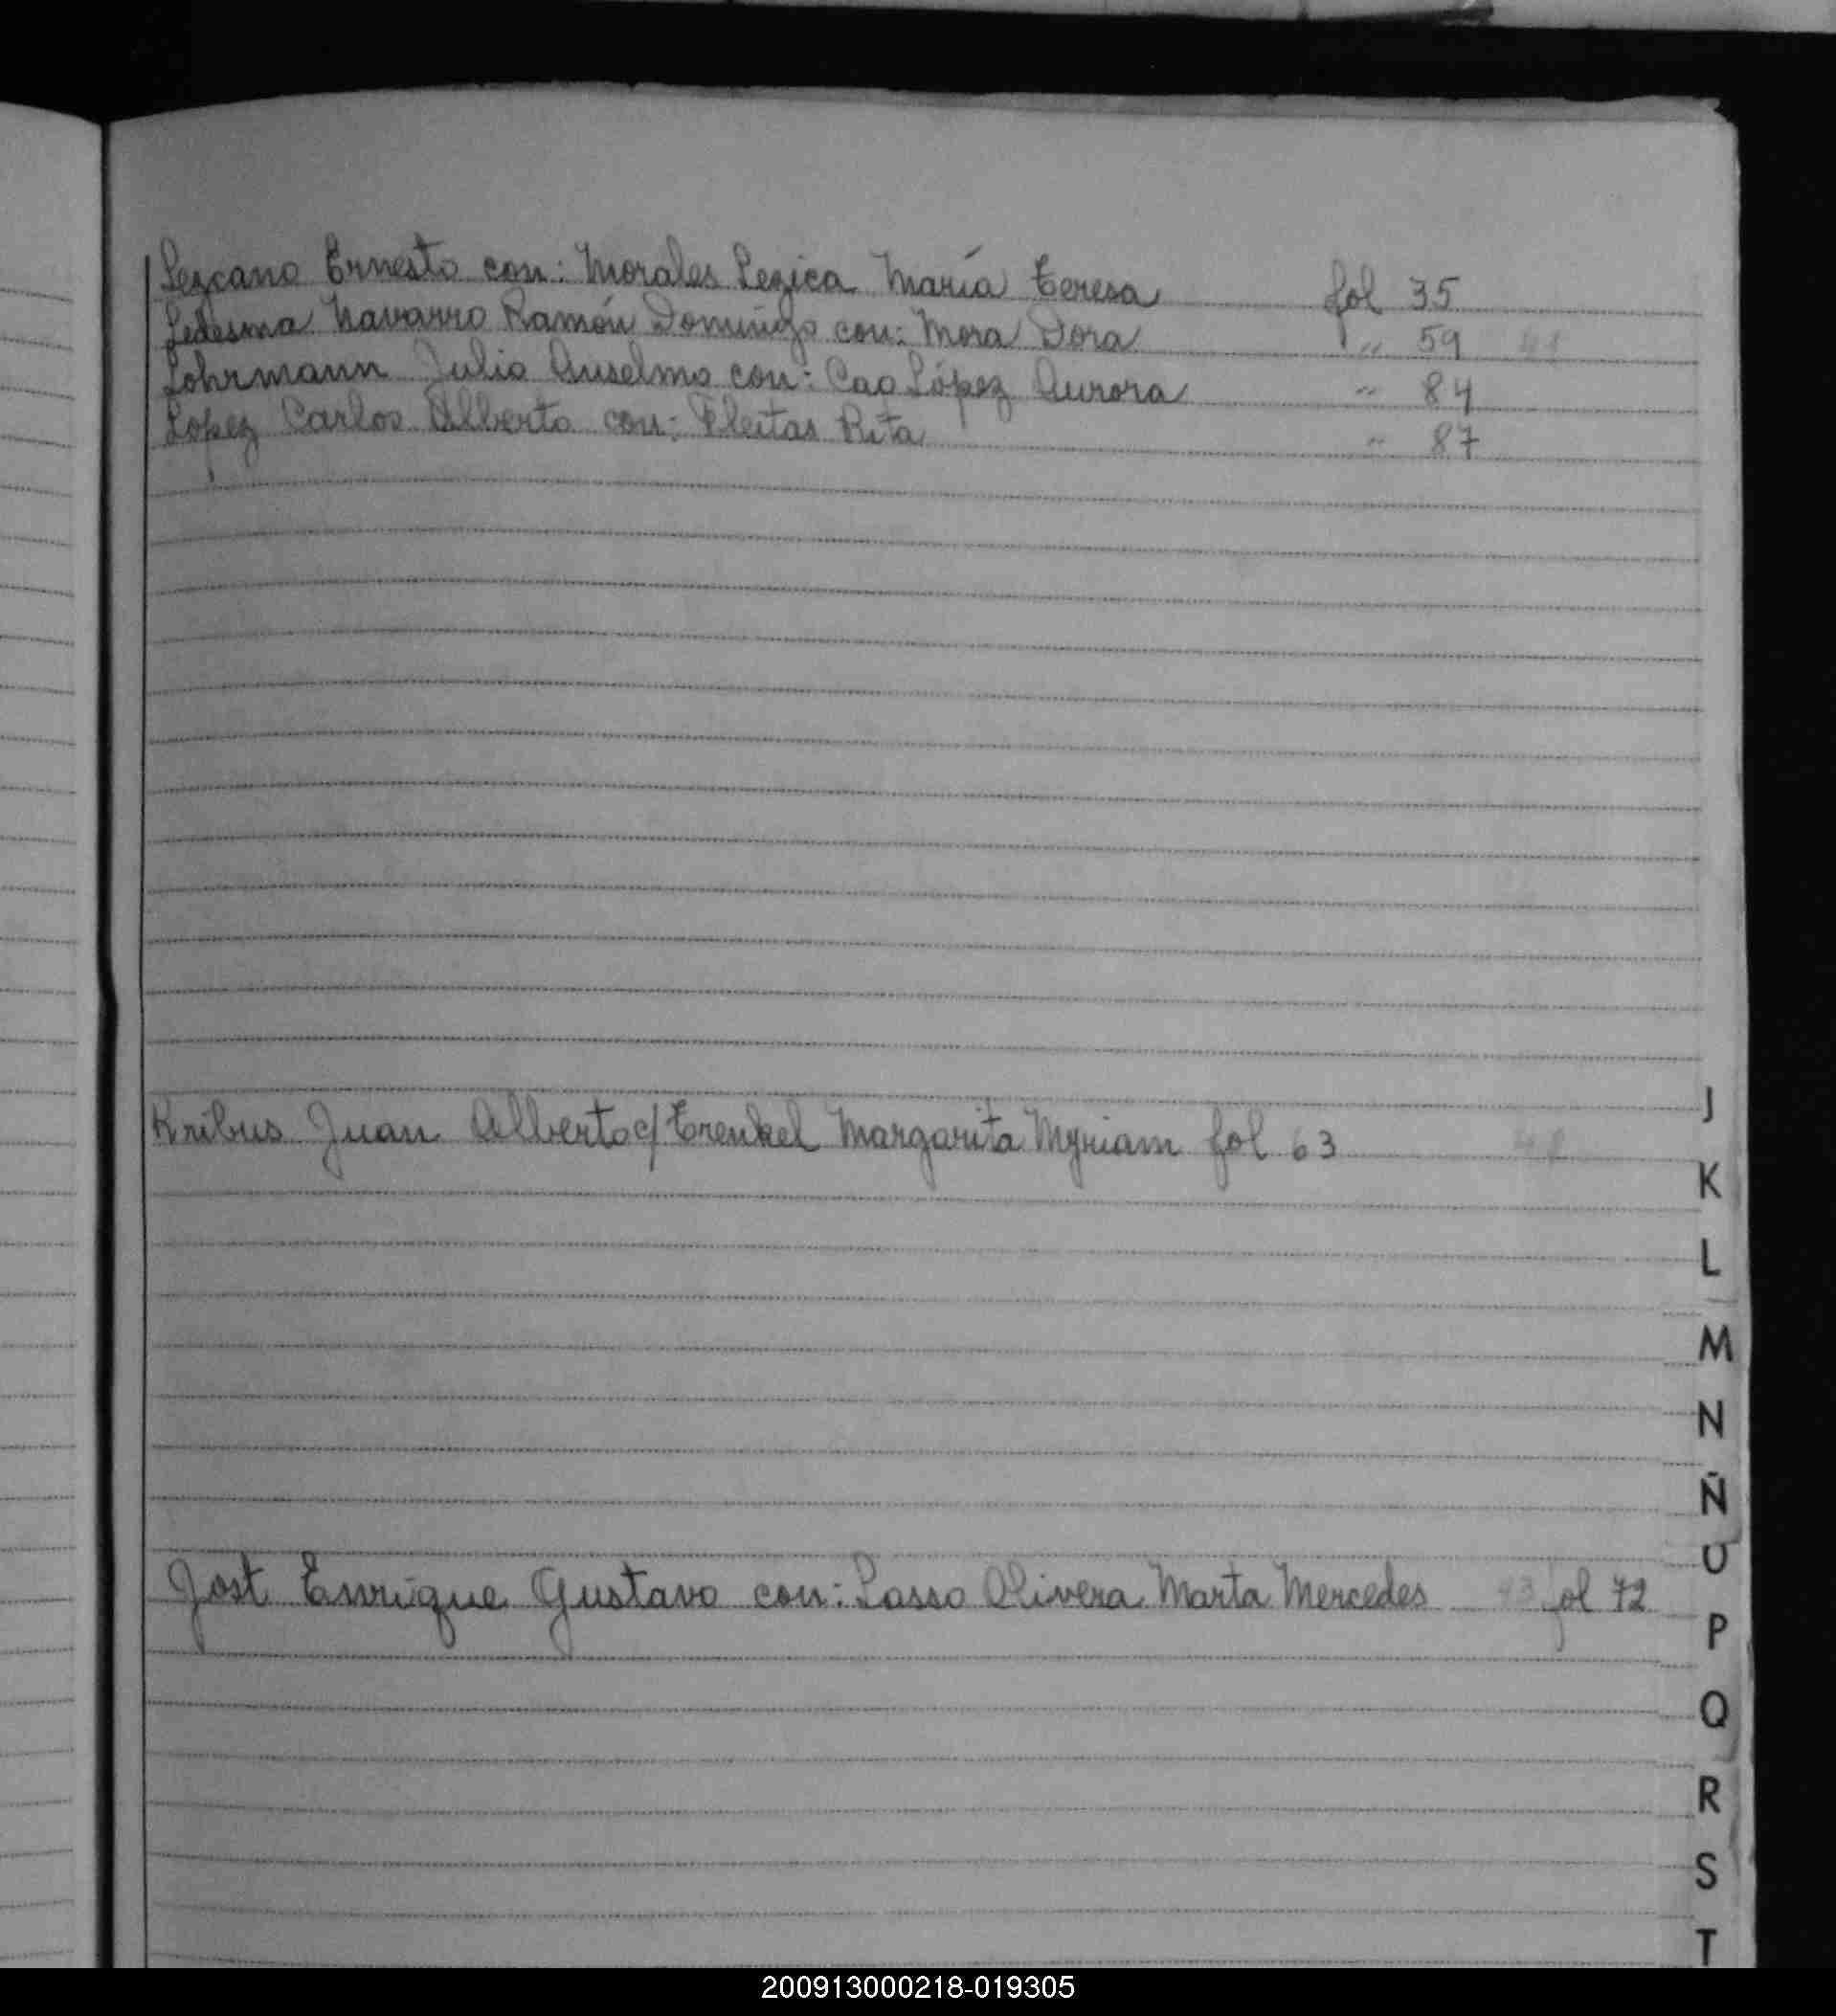 Lezcano Ernesto con: Morales Lezica María Teresa fol 35
Ledesma Navarro Ramón Domingo con: Mora Dora " 59
Lohrmann Julio Anselmo con: Cao López Aurora " 84
Lopez Carlos Alberto con: Fleitas Rita " 87
J
Kribus Juan Alberto c/ Trenkel Margarita Myriam fol 63
K
L
M
N
Ñ
O
Jost Enrique Gustavo con: Lasso Olivera Marta Mercedes fol 72
P
Q
R
S
T
200913000218-019305